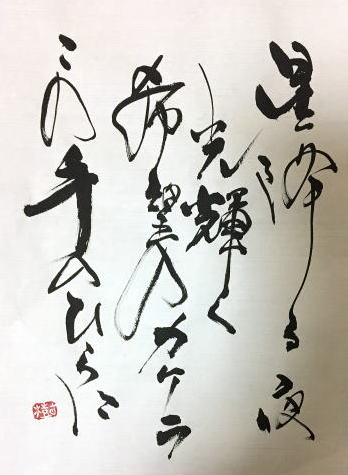 星降る夜
光輝く
希望のカケラ
この手のひらに